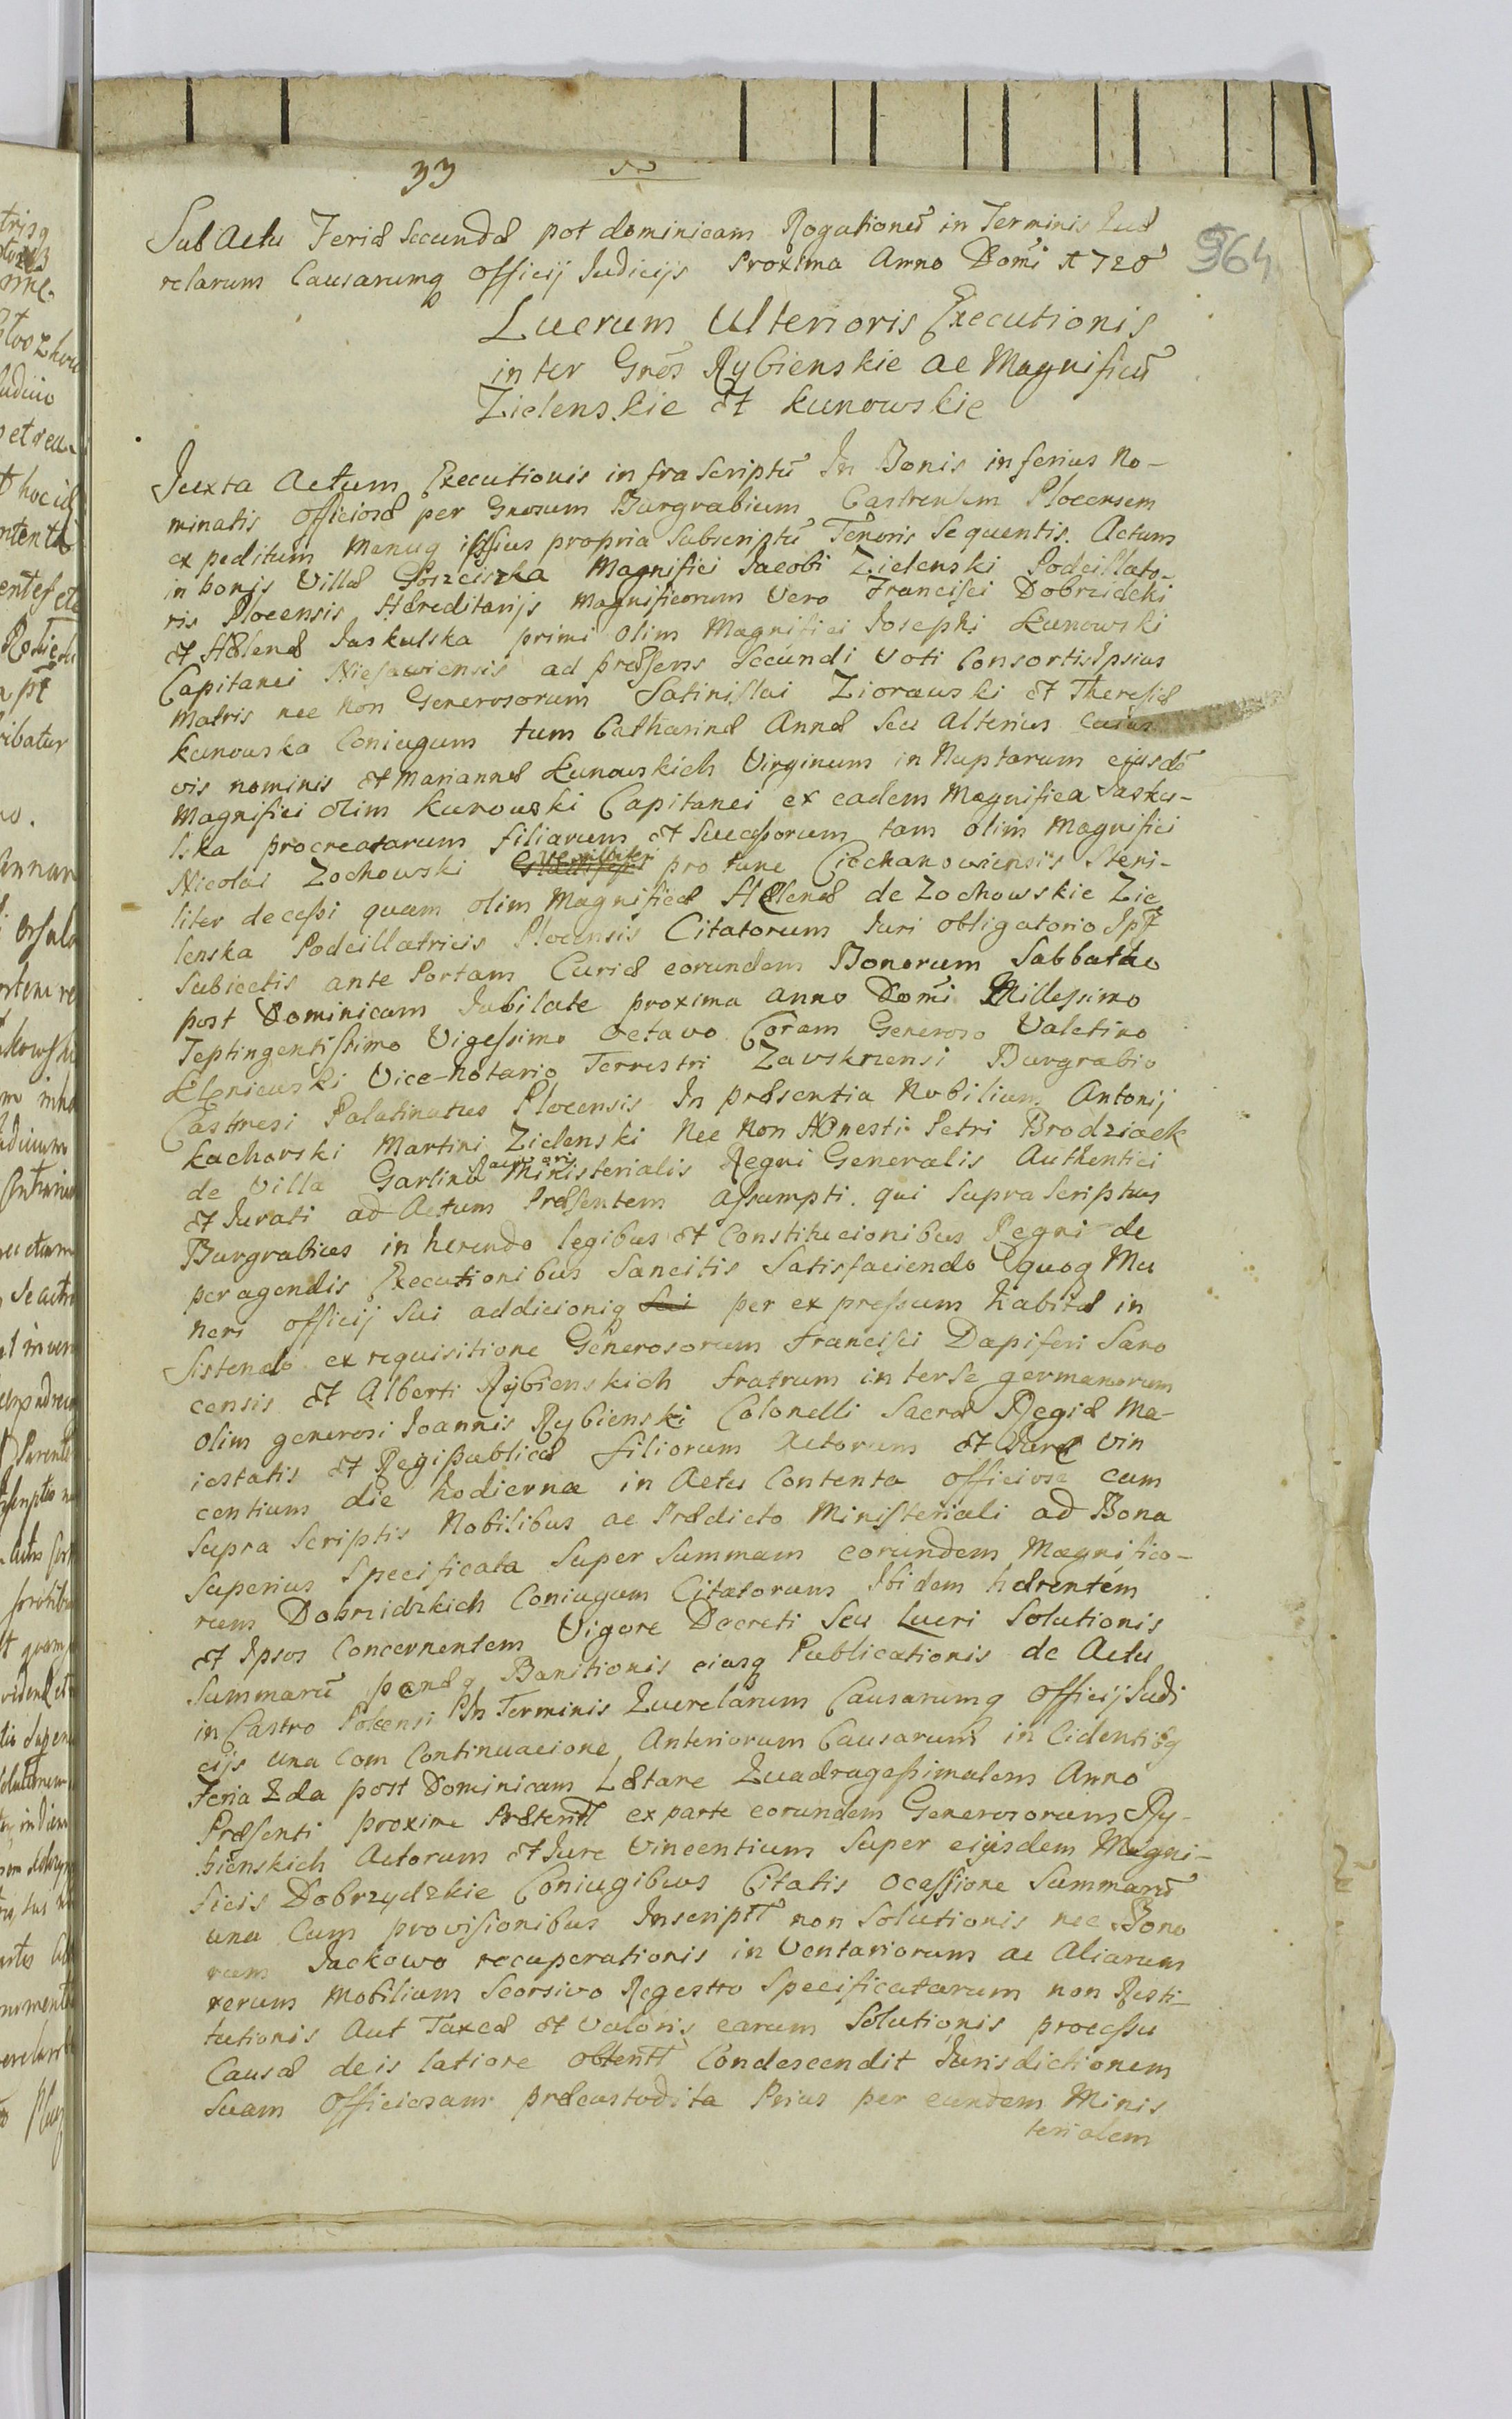 33
964
Sub Actu Feriæ Secundæ pot dominicam Rogationũ in Terminis Que
relarum Causarumq officij Judicijs Proxima Anno Domĩ 1728
Lucrum Ulterioris Executionis
inter Gnẽs Rybienskie ac Magnificũ
Zielenskie et Kunowskie
Juxta Actum Executionis infra Scriptũ In Bonis inferius No-
minatis officiosæ per Gnosum Burgrabium Castrensem Plocensem
ex peditum Manuq ipsius propria Subscriptũ Tenoris Sequentis. Actum
in bonis Villæ Magnifici Jacobi Zielenski Podcillato-
ris Plocensis Hæreditarijs Magnificorum Vero Francisci Dobrzidcki
et Hælenæ Jaskulska primi olim Magnifici Josephi Kunowski
Capitanei Niesawiensis ad præsens Secundi Voti Consortis Ipsius
Matris nec non Generosorum Satinislai Ziorawski et Theresiæ
Kunowska Coniugum tum Catharinæ Annæ Seu Alterius cuius
vis nominis et Mariannæ Kunowskich Virginum in Nuptarum ejusdẽ
Magnifici olim Kunowski Capitanei ex eadem Magnifica Jasku-
lska procreatarum filiarum et Sucessorum tam olim Magnifici
Nicolai Zochowski Vexilliferi pro tunc Ciechanowiensis Steri-
liter decessi quam olim Magnificæ Hælenæ de Zochowskie Zie
lenska Podcillatricis Plocensis Citatorum Juri obligatorio
Subiectis ante Portam Curiæ eorundem Bonorum Sabbatho
post Dominicam Jubilate proxima anno Domĩ Millessimo
Septingentissimo Vigessimo octavo Coram Generoso Valetino
Vice-Notario Terrestri Zavskrzensi Burgrabio
Castresi Palatinatus Plocensis In præsentia Nobilium Antonij
Kachorski Martini Zielenski Nec Non Honesti Petri Brodziack
de Villa Garlino Ministerialis Regni Generalis Authentici
et Jurati ad Actum Præsentem assumpti. qui Supra Scriptus
Burgrabius in herendo legibus et Constitucionibus Regni de
per agendis Executionibus Sancitis Satisfaciendo quoq Mu
neri officij Sui addicioniq Sui per expressum habitæ in
Sistendo ex requisitione Generosorum Francisci Dapiferi Sano
censis et Alberti Rybienskich fratrum interse germanorum
olim generosi Joannis Rybienski Colonelli Sacræ Regiæ Ma-
iestatis et Reipublicæ filiorum Actorum et Jure Vin
centium die hodierna in Actu Contenta officiose cum
Supra Scriptis Nobilibus ac Prædicto Ministeriali ad Bona
Superius Specificata Super Summam eorundem Magnifico-
rum Dobrzidzkich Coniugum Citatorum Ibidem hærentem
et Ipsos Concernentem Vigore Decreti Seu Lucri Solutionis
Summarũ pænæq Banitionis eiusq Publicationis de Actu
in Castro In Terminis Querelarum Causarumq officij Judi
cijs una Com Continuacione Anteriorum Causarum in Cidentibq
Feria 2da post Dominicam Lætare Quadragessimalem Anno
Præsenti proxime ex parte eorundem Generosorum Ry-
bienskich Actorum et Jure Vincentium Super eijsdem Magni-
ficis Dobrzydzkie Coniugibus Citatis ocassione Summarũ
una Cum provisionibus non Solutionis nec Bono
rum Jackowo recuperationis in Ventariorum ac Aliarum
rerum Mobilium Seorsivo Regestro Specificatarum non Resti-
tutionis Aut Taxeæ et Valoris earum Solutionis processu
Causæ deis latiore Condescendit Jurisdictionem
Suam Officiosam præcustodita Prius per eundem Minis
terialem